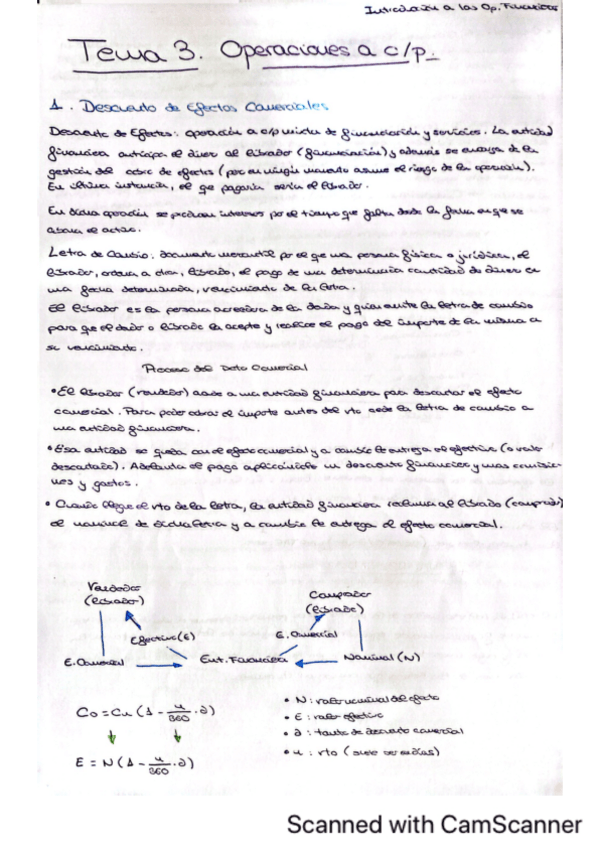 Introducción a las Op. Financieras
Tema 3. Operaciones a c/p.
1. Descuento de Efectos Comerciales
Descuento de Efectos: operación a c/p mixta de financiación y servicios. La entidad
financiera anticipa el dinero al librador (financiación) y además se encarga de la
gestión del cobro de efectos (pero en ningún momento asume el riesgo de la operación).
En última instancia, el que pagaría sería el librador.
En dicha operación se producen intereses por el tiempo que falta desde la forma en que se
abona el activo.
Letra de Cambio: documento mercantil por el que una persona física o jurídica, el
librador, ordena a otra, librado, el pago de una determinada cantidad de dinero en
una fecha determinada, vencimiento de la letra.
El librador es la persona acreedora de la deuda y quien emite la letra de cambio
para que el deudor o librado la acepte y realice el pago del importe de la misma a
su vencimiento.
Proceso del Dcto Comercial
• El librador (vendedor) acude a una entidad financiera para descontar el efecto
comercial. Para poder cobrar el importe antes del vto cede la letra de cambio a
una entidad financiera.
• Esa entidad se queda con el efecto comercial y a cambio le entrega el efectivo (o valor
descontado). Adelanta el pago aplicándole un descuento financiero y unas comisio-
nes y gastos.
• Cuando llegue el vto de la letra, la entidad financiera reclama al librado (comprador)
el nominal de dicha letra y a cambio le entrega el efecto comercial.
Vendedor
(librador)
Comprador
(librado)
Efectivo (E)
E. Comercial
E. Comercial
Ent. Financiera
Nominal (N)
Co = Cn (1 - n/360 · d)
E = N (1 - n/360 · d)
• N: valor nominal del efecto
• E: valor efectivo
• d: tanto de descuento comercial
• n: vto (suele ser en días)
Scanned with CamScanner